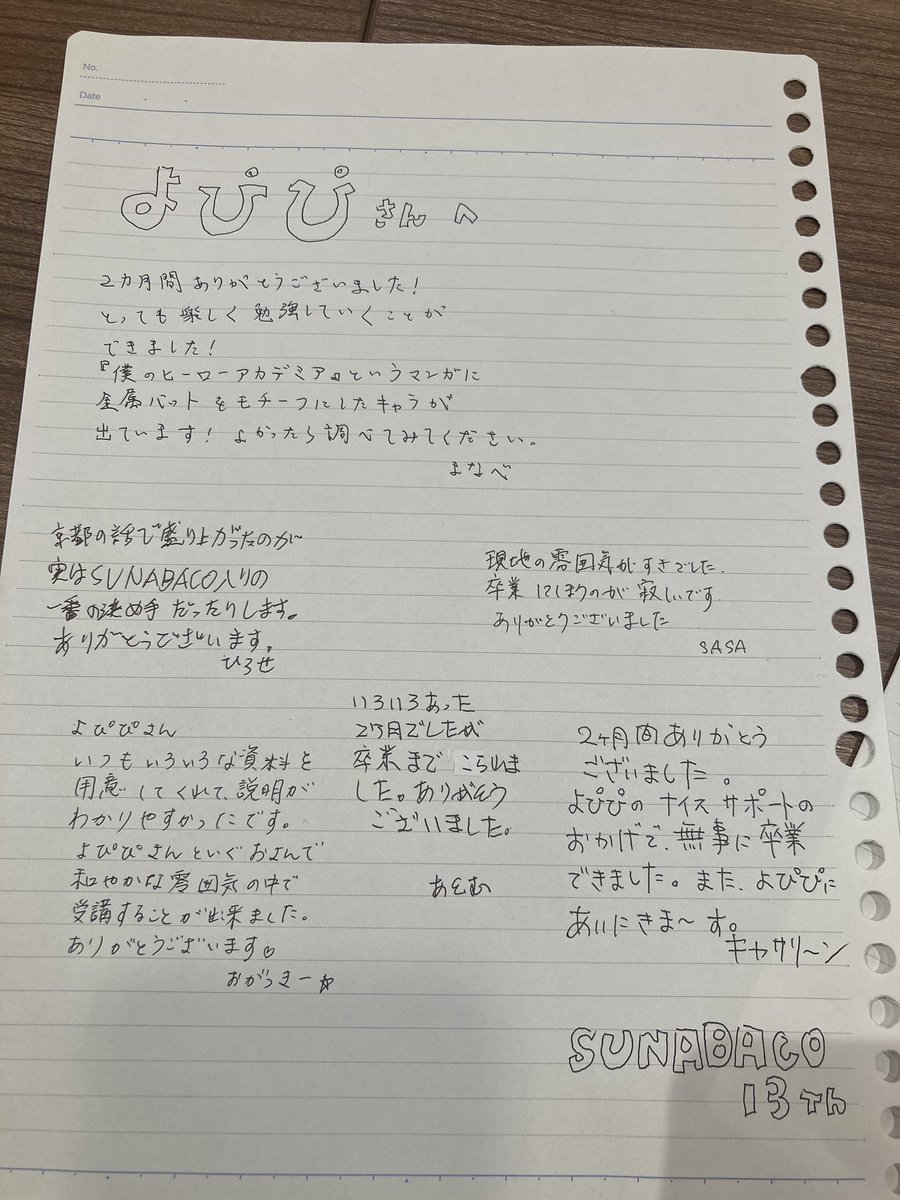 No.
Date
よぴぴさんへ
2カ月間ありがとうございました!
とっても楽しく勉強していくことが
できました!
『僕のヒーローアカデミア』というマンガに
金属バットをモチーフにしたキャラが
出ています! よかったら調べてみてください。
まなべ
京都の話で盛り上がったのが
実はSUNABACO入りの
一番の決め手だったりします。
ありがとうございます。
ひろせ
現地の雰囲気がすきでした.
卒業してしまうのが寂しいです.
ありがとうございました
SASA
よぴぴさん
いつもいろいろな資料を
用意してくれて、説明が
わかりやすかったです。
よぴぴさんといぐおさんで
和やかな雰囲気の中で
受講することが出来ました。
ありがとうございます♡
おがつまー☆
いろいろあった
2ヶ月でしたが
卒業までこられま
した。ありがとう
ございました。
あとむ
2ヶ月間ありがとう
ございました。
よぴぴのナイスサポートの
おかげで、無事に卒業
できました。また、よぴぴに
あいにきま〜す。
キャサリ〜ン
SUNABACO
13Th